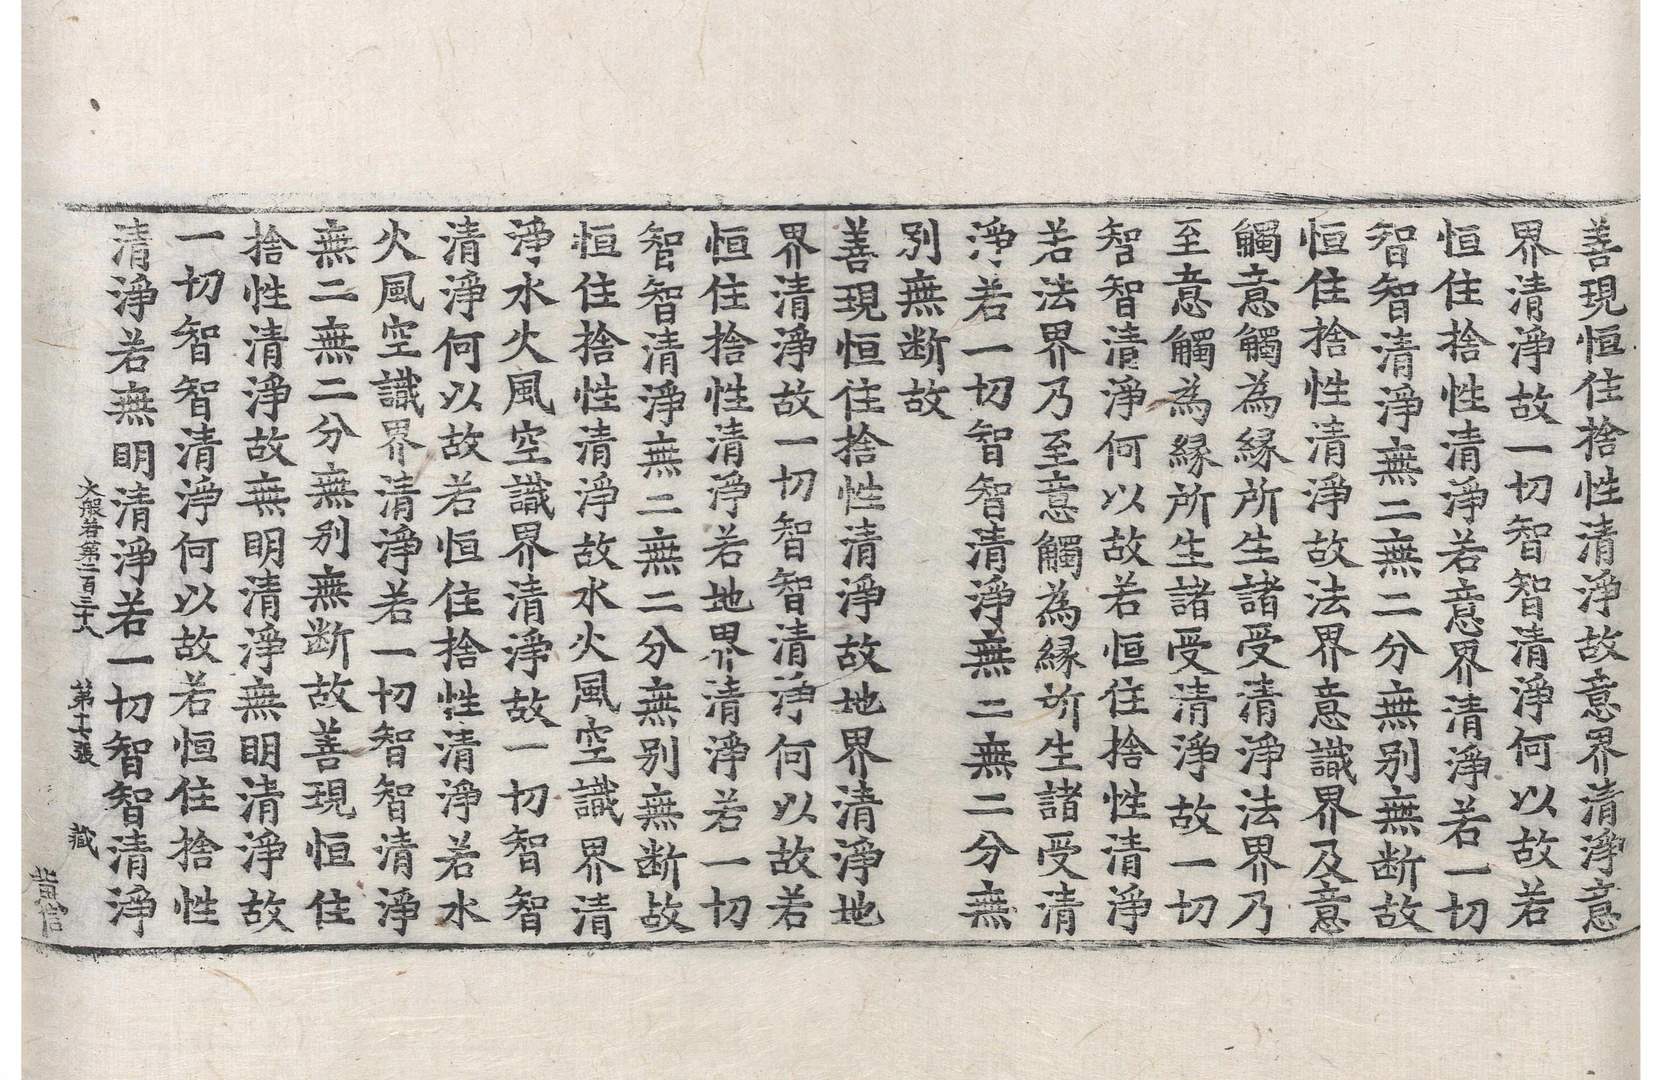 善現恒住捨性清淨故意界清淨意
界清淨故一切智智清淨何以故若
恒住捨性清淨若意界清淨若一切
智智清淨無二無二分無別無断故
恒住捨性清淨故法界意識界及意
觸意觸為縁所生諸受清淨法界乃
至意觸為縁所生諸受清淨故一切
智智清淨何以故若恒住捨性清淨
若法界乃至意觸為縁所生諸受清
淨若一切智智清淨無二無二分無
別無断故
善現恒住捨性清淨故地界清淨地
界清淨故一切智智清淨何以故若
恒住捨性清淨若地界清淨若一切
智智清淨無二無二分無別無断故
恒住捨性清淨故水火風空識界清
淨水火風空識界清淨故一切智智
清淨何以故若恒住捨性清淨若水
火風空識界清淨若一切智智清淨
無二無二分無別無断故善現恒住
捨性清淨故無明清淨無明清淨故
一切智智清淨何以故若恒住捨性
清淨若無明清淨若一切智智清淨
大般若第二百三十八 第十七張 藏
信